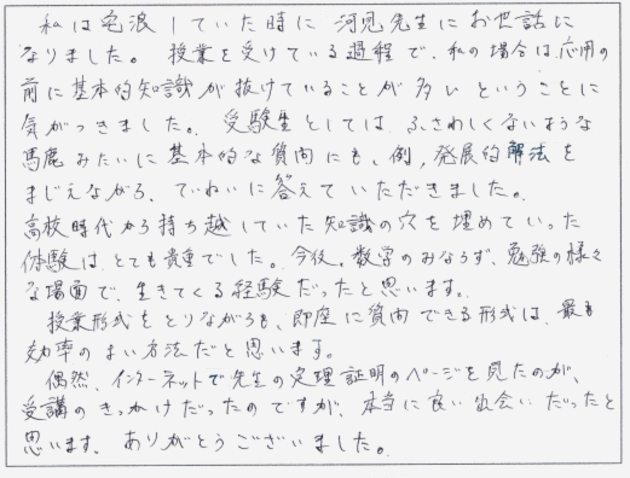 私は宅浪していた時に河見先生にお世話に
なりました。授業を受けている過程で、私の場合は、応用の
前に基本的知識が抜けていることが多いということに
気がつきました。受験生としては、ふさわしくないような
馬鹿みたいに基本的な質問にも、例、発展的解法を
まじえながら、ていねいに答えていただきました。
高校時代から持ち越していた知識の穴を埋めていった
体験は、とても貴重でした。今後、数学のみならず、勉強の様々
な場面で、生きてくる経験だったと思います。
授業形式をとりながらも、即座に質問できる形式は、最も
効率のよい方法だと思います。
偶然、インターネットで先生の定理証明のページを見たのが、
受講のきっかけだったのですが、本当に良い出会いだったと
思います。ありがとうございました。